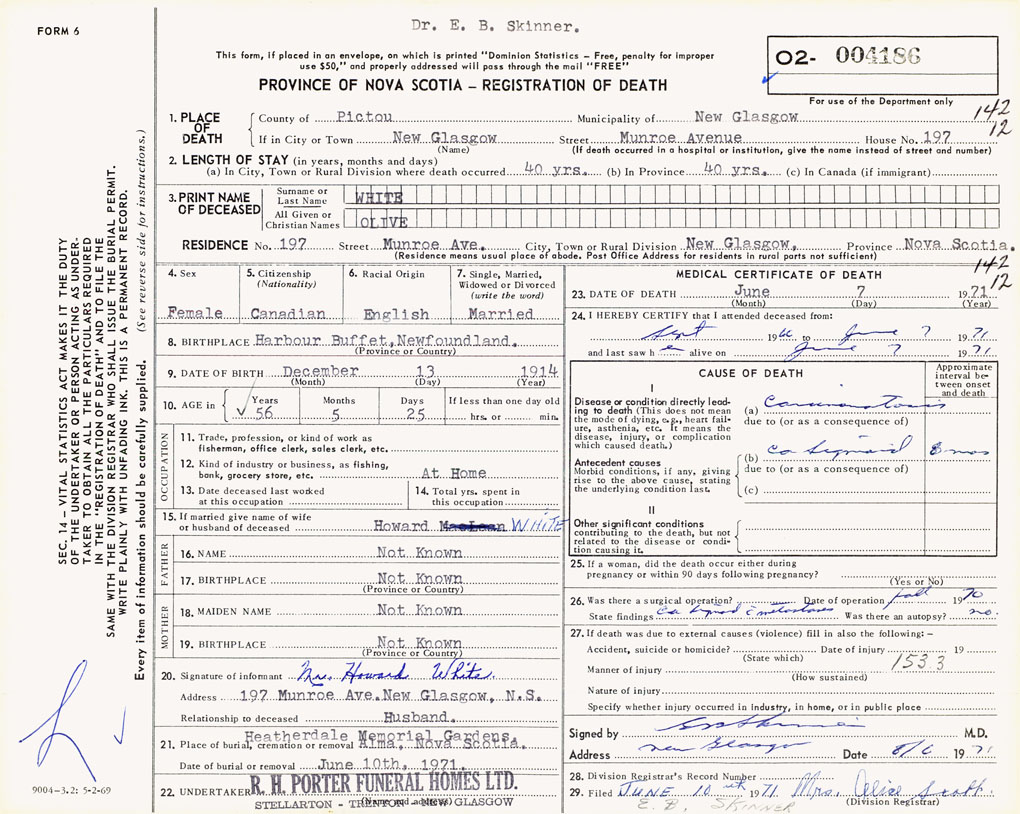 FORM 6
Dr. E. B. Skinner.
This form, if placed in an envelope, on which is printed "Dominion Statistics – Free, penalty for improper
use $50," and properly addressed will pass through the mail "FREE"
PROVINCE OF NOVA SCOTIA – REGISTRATION OF DEATH
O2- 004186
For use of the Department only
142
12
1. PLACE OF DEATH
County of Pictou Municipality of New Glasgow
If in City or Town New Glasgow Street Munroe Avenue House No. 197
(Name) (If death occurred in a hospital or institution, give the name instead of street and number)
2. LENGTH OF STAY (in years, months and days)
(a) In City, Town or Rural Division where death occurred 40 yrs. (b) In Province 40 yrs. (c) In Canada (if immigrant)
3. PRINT NAME OF DECEASED
Surname or Last Name WHITE
All Given or Christian Names OLIVE
RESIDENCE No. 197 Street Munroe Ave. City, Town or Rural Division New Glasgow, Province Nova Scotia.
(Residence means usual place of abode. Post Office Address for residents in rural parts not sufficient)
4. Sex Female
5. Citizenship (Nationality) Canadian
6. Racial Origin English
7. Single, Married, Widowed or Divorced (write the word) Married
8. BIRTHPLACE Harbour Buffet, Newfoundland.
(Province or Country)
9. DATE OF BIRTH December 13 1914
(Month) (Day) (Year)
10. AGE in Years 56 Months 5 Days 25 If less than one day old hrs. or min.
OCCUPATION
11. Trade, profession, or kind of work as
fisherman, office clerk, sales clerk, etc.
12. Kind of industry or business, as fishing,
bank, grocery store, etc. At Home
13. Date deceased last worked
at this occupation
14. Total yrs. spent in
this occupation
15. If married give name of wife
or husband of deceased Howard WHITE
FATHER
16. NAME Not Known
17. BIRTHPLACE Not Known
(Province or Country)
MOTHER
18. MAIDEN NAME Not Known
19. BIRTHPLACE Not Known
(Province or Country)
20. Signature of informant Mrs. Howard White.
Address 197 Munroe Ave. New Glasgow, N.S.
Relationship to deceased Husband.
Heatherdale Memorial Gardens,
21. Place of burial, cremation or removal Alma, Nova Scotia.
Date of burial or removal June 10th, 1971.
22. UNDERTAKER R. H. PORTER FUNERAL HOMES LTD.
(Name and address)
STELLARTON - TRENTON - NEW GLASGOW
MEDICAL CERTIFICATE OF DEATH
142
12
23. DATE OF DEATH June 7 1971
(Month) (Day) (Year)
24. I HEREBY CERTIFY that I attended deceased from:
Sept 19 to June 7 1971
and last saw h er alive on June 7 1971
CAUSE OF DEATH
Approximate interval between onset and death
I
Disease or condition directly lead-
ing to death (This does not mean
the mode of dying, e.g., heart fail-
ure, asthenia, etc. It means the
disease, injury, or complication
which caused death.)
(a) Carcinomatosis
due to (or as a consequence of)
(b) Ca Sigmoid 8 mos
due to (or as a consequence of)
(c)
Antecedent causes
Morbid conditions, if any, giving
rise to the above cause, stating
the underlying condition last.
II
Other significant conditions
contributing to the death, but not
related to the disease or condi-
tion causing it.
25. If a woman, did the death occur either during
pregnancy or within 90 days following pregnancy?
(Yes or No)
26. Was there a surgical operation? Date of operation fall 1970
State findings Ca Sigmoid c metastases Was there an autopsy? no.
27. If death was due to external causes (violence) fill in also the following: –
Accident, suicide or homicide? Date of injury 19
(State which)
153.3
Manner of injury
(How sustained)
Nature of injury
Specify whether injury occurred in industry, in home, or in public place
Signed by EB Skinner M.D.
Address New Glasgow Date 8/6 1971
28. Division Registrar's Record Number
29. Filed JUNE 10th 1971 Mrs. Alice Scott.
(Division Registrar)
E. B. SKINNER
SEC. 14 – VITAL STATISTICS ACT MAKES IT THE DUTY
OF THE UNDERTAKER OR PERSON ACTING AS UNDER-
TAKER TO OBTAIN ALL THE PARTICULARS REQUIRED
IN THE "REGISTRATION OF DEATH" AND TO FILE THE
SAME WITH THE DIVISION REGISTRAR WHO SHALL ISSUE THE BURIAL PERMIT.
WRITE PLAINLY WITH UNFADING INK. THIS IS A PERMANENT RECORD.
Every item of information should be carefully supplied. (See reverse side for instructions.)
9004-3.2: 5-2-69